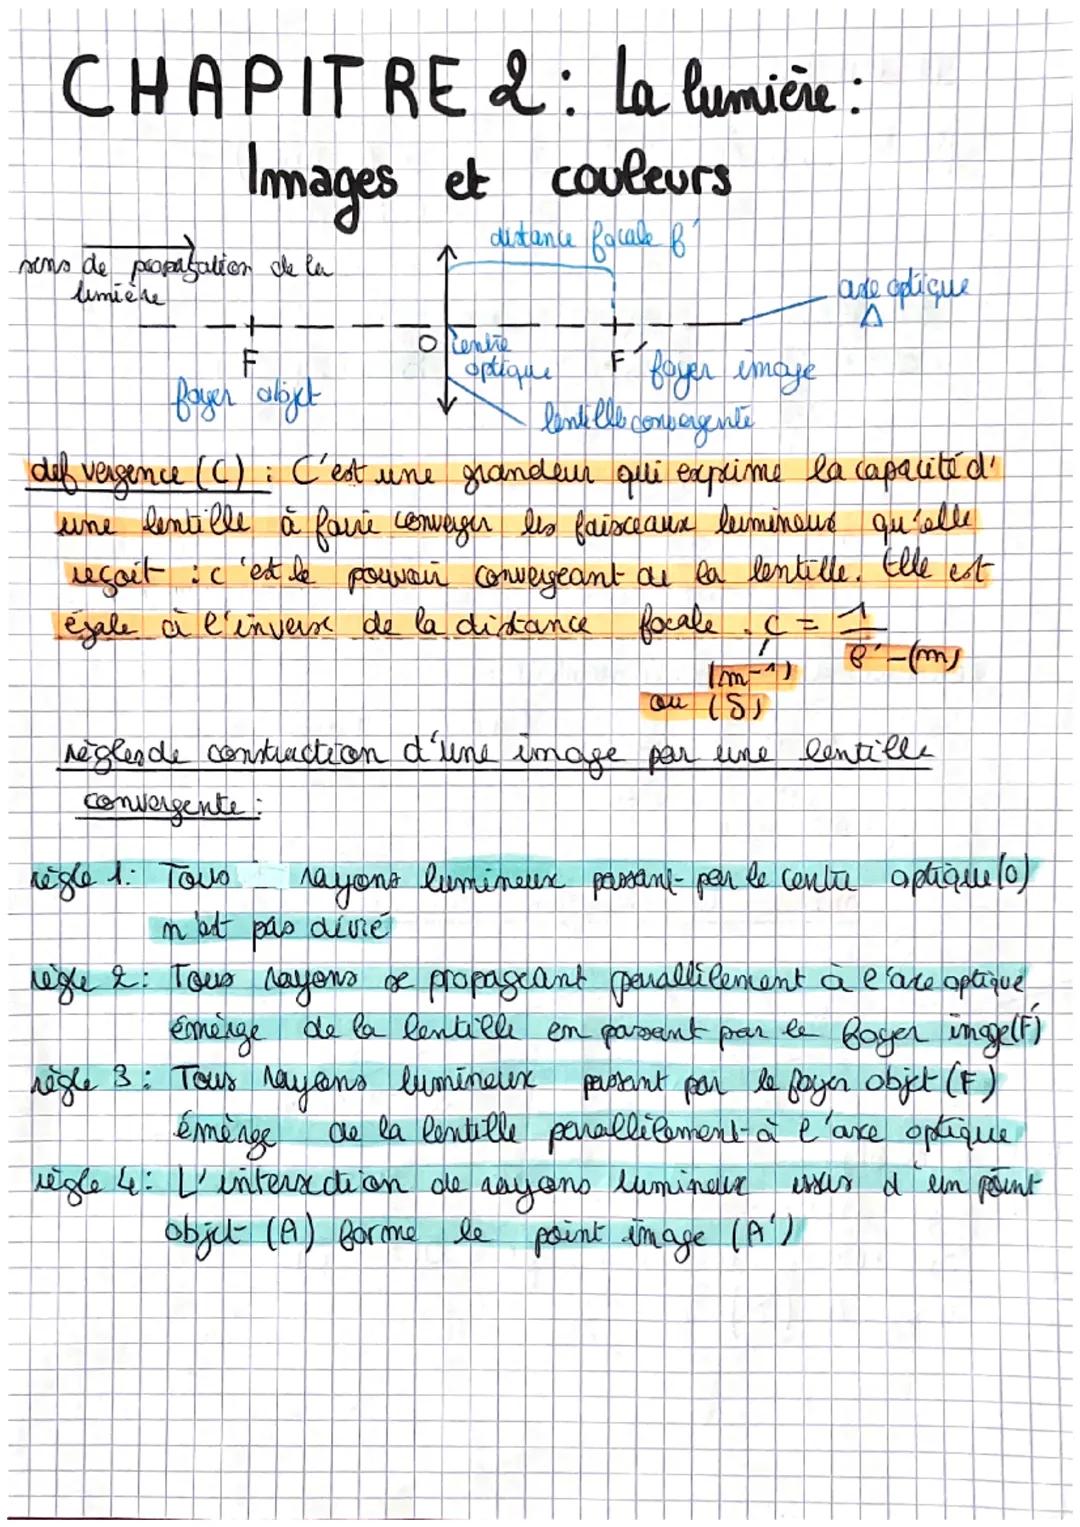 CHAPITRE 2 : La lumière :
Images et couleurs
distance focale f'
sens de propagation de la
lumière
axe optique
Δ
O
centre
optique
F
F'
foyer image
foyer objet
lentille convergente
def vergence (C) : C'est une grandeur qui exprime la capacité d'
une lentille à faire converger les faisceaux lumineux qu'elle
reçoit : c'est le pouvoir convergeant de la lentille. Elle est
égale à l'inverse de la distance focale. C = 1
f' - (m)
(m-1)
ou (δ)
règles de construction d'une image par une lentille
convergente :
règle 1 : Tous rayons lumineux passant par le centre optique (O)
n'est pas dévié
règle 2 : Tous rayons se propageant parallèlement à l'axe optique
émèrge de la lentille en passant par le foyer image (F')
règle 3 : Tous rayons lumineux passant par le foyer objet (F)
émèrge de la lentille parallèlement à l'axe optique
règle 4 : L'intersection de rayons lumineux issus d'un point
objet (A) forme le point image (A')